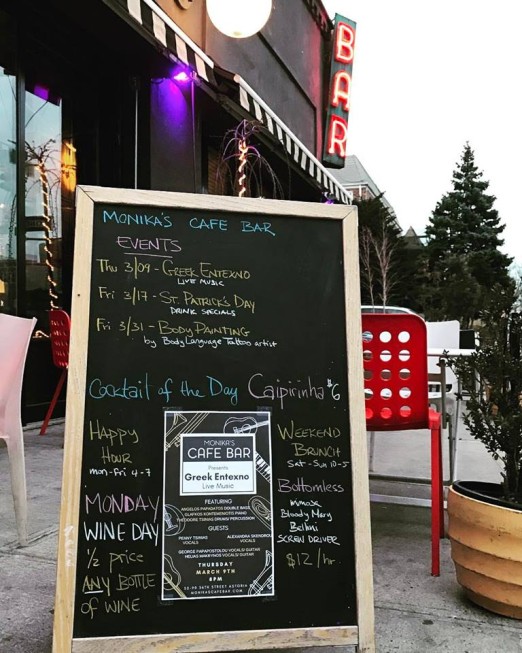 BAR
MONIKA'S CAFE BAR
EVENTS
Thu 3/09 - GREEK ENTEXNO
LIVE MUSIC
Fri 3/17 - ST. PATRICK'S DAY
DRINK SPECIALS
Fri 3/31 - BODY PAINTING
by Body Language Tattoo artist
Cocktail of the Day Caipirinha $6
HAPPY
HOUR
mon-Fri 4-7
MONDAY
WINE DAY
1/2 price
ANY BOTTLE
OF WINE
MONIKA'S
CAFE BAR
Presents
Greek Entexno
Live Music
FEATURING
ANGELOS PAPADATOS DOUBLE BASS
GLAFKOS KONTEMENIOTIS PIANO
THEODORE TSINIAS DRUMS/PERCUSSION
GUESTS
PENNY TSINIAS
VOCALS
ALEXANDRA SKENDROU
VOCALS
GEORGE PAPAPOSTOLOU VOCALS/GUITAR
VOCALS/GUITAR
THURSDAY
MARCH 9TH
8PM
36TH STREET ASTORIA
MONIKASCAFEBAR.COM
WEEKEND
BRUNCH
Sat-Sun 10-5
Bottomless
Mimosa
Bloody Mary
Bellini
SCREW DRIVER
$12/hr